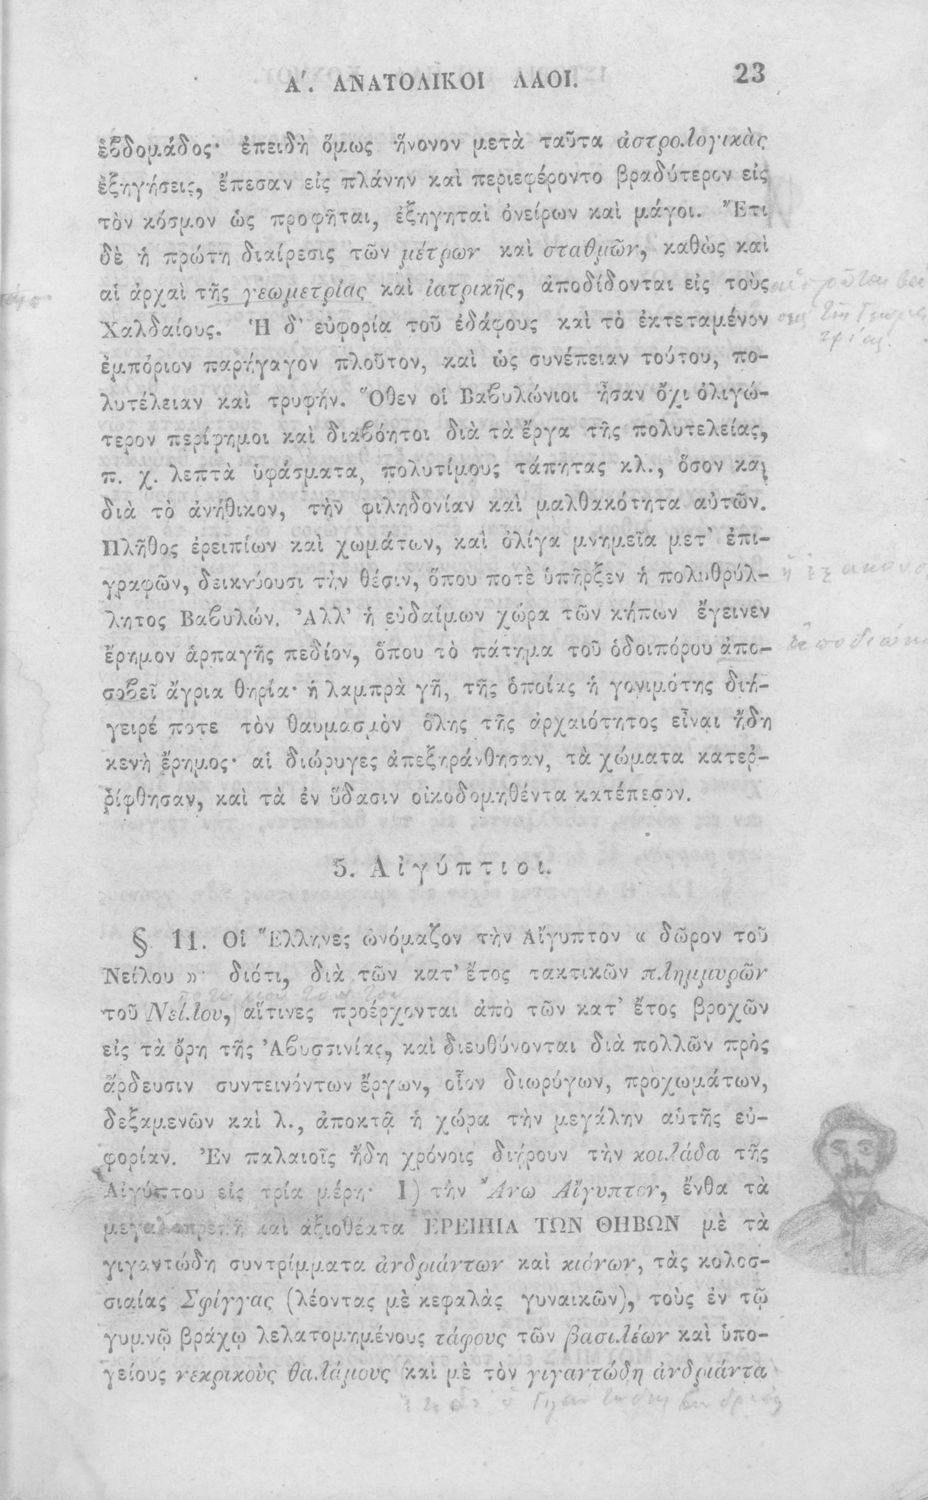 Α'. ΑΝΑΤΟΛΙΚΟΙ ΛΑΟΙ. 23
ἑβδομάδος· ἐπειδὴ ὅμως ἥνονον μετὰ ταῦτα ἀστρολογικὰς
ἐξηγήσεις, ἔπεσαν εἰς πλάνην καὶ περιεφέροντο βραδύτερον εἰς
τὸν κόσμον ὡς προφῆται, ἐξηγηταὶ ὀνείρων καὶ μάγοι. Ἔτι
δὲ ἡ πρώτη διαίρεσις τῶν μέτρων καὶ σταθμῶν, καθὼς καὶ
αἱ ἀρχαὶ τῆς γεωμετρίας καὶ ἰατρικῆς, ἀποδίδονται εἰς τοὺς
Χαλδαίους. Ἡ δ' εὐφορία τοῦ ἐδάφους καὶ τὸ ἐκτεταμένον
ἐμπόριον παρήγαγον πλοῦτον, καὶ ὡς συνέπειαν τούτου, πο-
λυτέλειαν καὶ τρυφήν. Ὅθεν οἱ Βαβυλώνιοι ἦσαν ὄχι ὀλιγώ-
τερον περίφημοι καὶ διαβόητοι διὰ τὰ ἔργα τῆς πολυτελείας,
π. χ. λεπτὰ ὑφάσματα, πολυτίμους τάπητας κλ., ὅσον καὶ
διὰ τὸ ἀνήθικον, τὴν φιληδονίαν καὶ μαλθακότητα αὐτῶν.
Πλῆθος ἐρειπίων καὶ χωμάτων, καὶ ὀλίγα μνημεῖα μετ' ἐπι-
γραφῶν, δεικνύουσι τὴν θέσιν, ὅπου ποτὲ ὑπῆρξεν ἡ πολυθρύλ-
λητος Βαβυλών. Ἀλλ' ἡ εὐδαίμων χώρα τῶν κήπων ἔγεινεν
ἔρημον ἁρπαγῆς πεδίον, ὅπου τὸ πάτημα τοῦ ὁδοιπόρου ἀπο-
σοβεῖ ἄγρια θηρία· ἡ λαμπρὰ γῆ, τῆς ὁποίας ἡ γονιμότης διή-
γειρέ ποτε τὸν θαυμασμὸν ὅλης τῆς ἀρχαιότητος εἶναι ἤδη
κενὴ ἔρημος· αἱ διώρυγες ἀπεξηράνθησαν, τὰ χώματα κατεῤ-
ῥίφθησαν, καὶ τὰ ἐν ὕδασιν οἰκοδομηθέντα κατέπεσον.
5. Αἰγύπτιοι.
§ 11. Οἱ Ἕλληνες ὠνόμαζον τὴν Αἴγυπτον « δῶρον τοῦ
Νείλου »· διότι, διὰ τῶν κατ' ἔτος τακτικῶν πλημμυρῶν
τοῦ Νείλου, αἵτινες προέρχονται ἀπὸ τῶν κατ' ἔτος βροχῶν
εἰς τὰ ὄρη τῆς Ἀβυσσινίας, καὶ διευθύνονται διὰ πολλῶν πρὸς
ἄρδευσιν συντεινόντων ἔργων, οἷον διωρύγων, προχωμάτων,
δεξαμενῶν καὶ λ., ἀποκτᾷ ἡ χώρα τὴν μεγάλην αὑτῆς εὐ-
φορίαν. Ἐν παλαιοῖς ἤδη χρόνοις διῄρουν τὴν κοιλάδα τῆς
Αἰγύπτου εἰς τρία μέρη· 1) τὴν Ἄνω Αἴγυπτον, ἔνθα τὰ
μεγαλοπρεπῆ καὶ ἀξιοθέατα ΕΡΕΙΠΙΑ ΤΩΝ ΘΗΒΩΝ μὲ τὰ
γιγαντώδη συντρίμματα ἀνδριάντων καὶ κιόνων, τὰς κολοσ-
σιαίας Σφίγγας (λέοντας μὲ κεφαλὰς γυναικῶν), τοὺς ἐν τῷ
γυμνῷ βράχῳ λελατομημένους τάφους τῶν βασιλέων καὶ ὑπο-
γείους νεκρικοὺς θαλάμους καὶ μὲ τὸν γιγαντώδη ἀνδριάντα